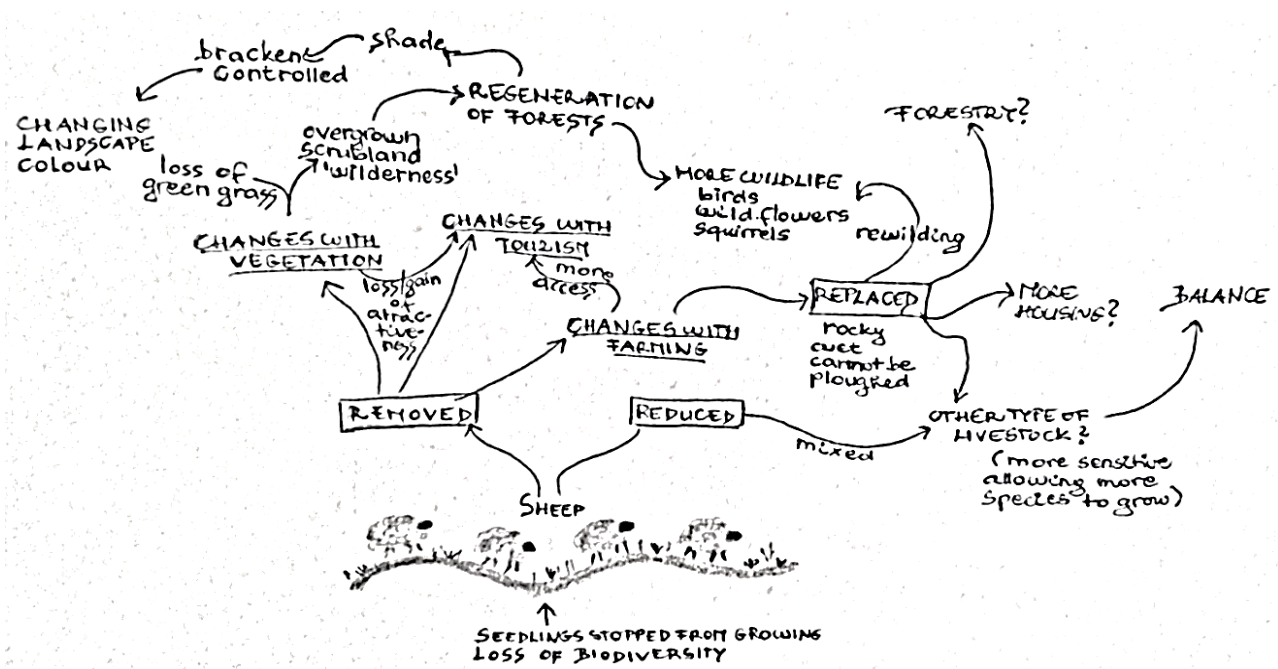 shade
bracken
controlled
REGENERATION
OF FORESTS
CHANGING
LANDSCAPE
COLOUR
overgrown
scrubland
'wilderness'
loss of
green grass
FORESTRY?
MORE WILDLIFE
birds
wild flowers
squirrels
rewilding
CHANGES WITH
VEGETATION
CHANGES WITH
TOURISM
loss/gain
of
attrac-
tive-
ness
more
access
CHANGES WITH
FARMING
REPLACED
rocky
cannot be
ploughed
MORE
HOUSING?
BALANCE
REMOVED
REDUCED
mixed
OTHER TYPE OF
LIVESTOCK?
(more sensitive
allowing more
species to grow)
SHEEP
SEEDLINGS STOPPED FROM GROWING
LOSS OF BIODIVERSITY